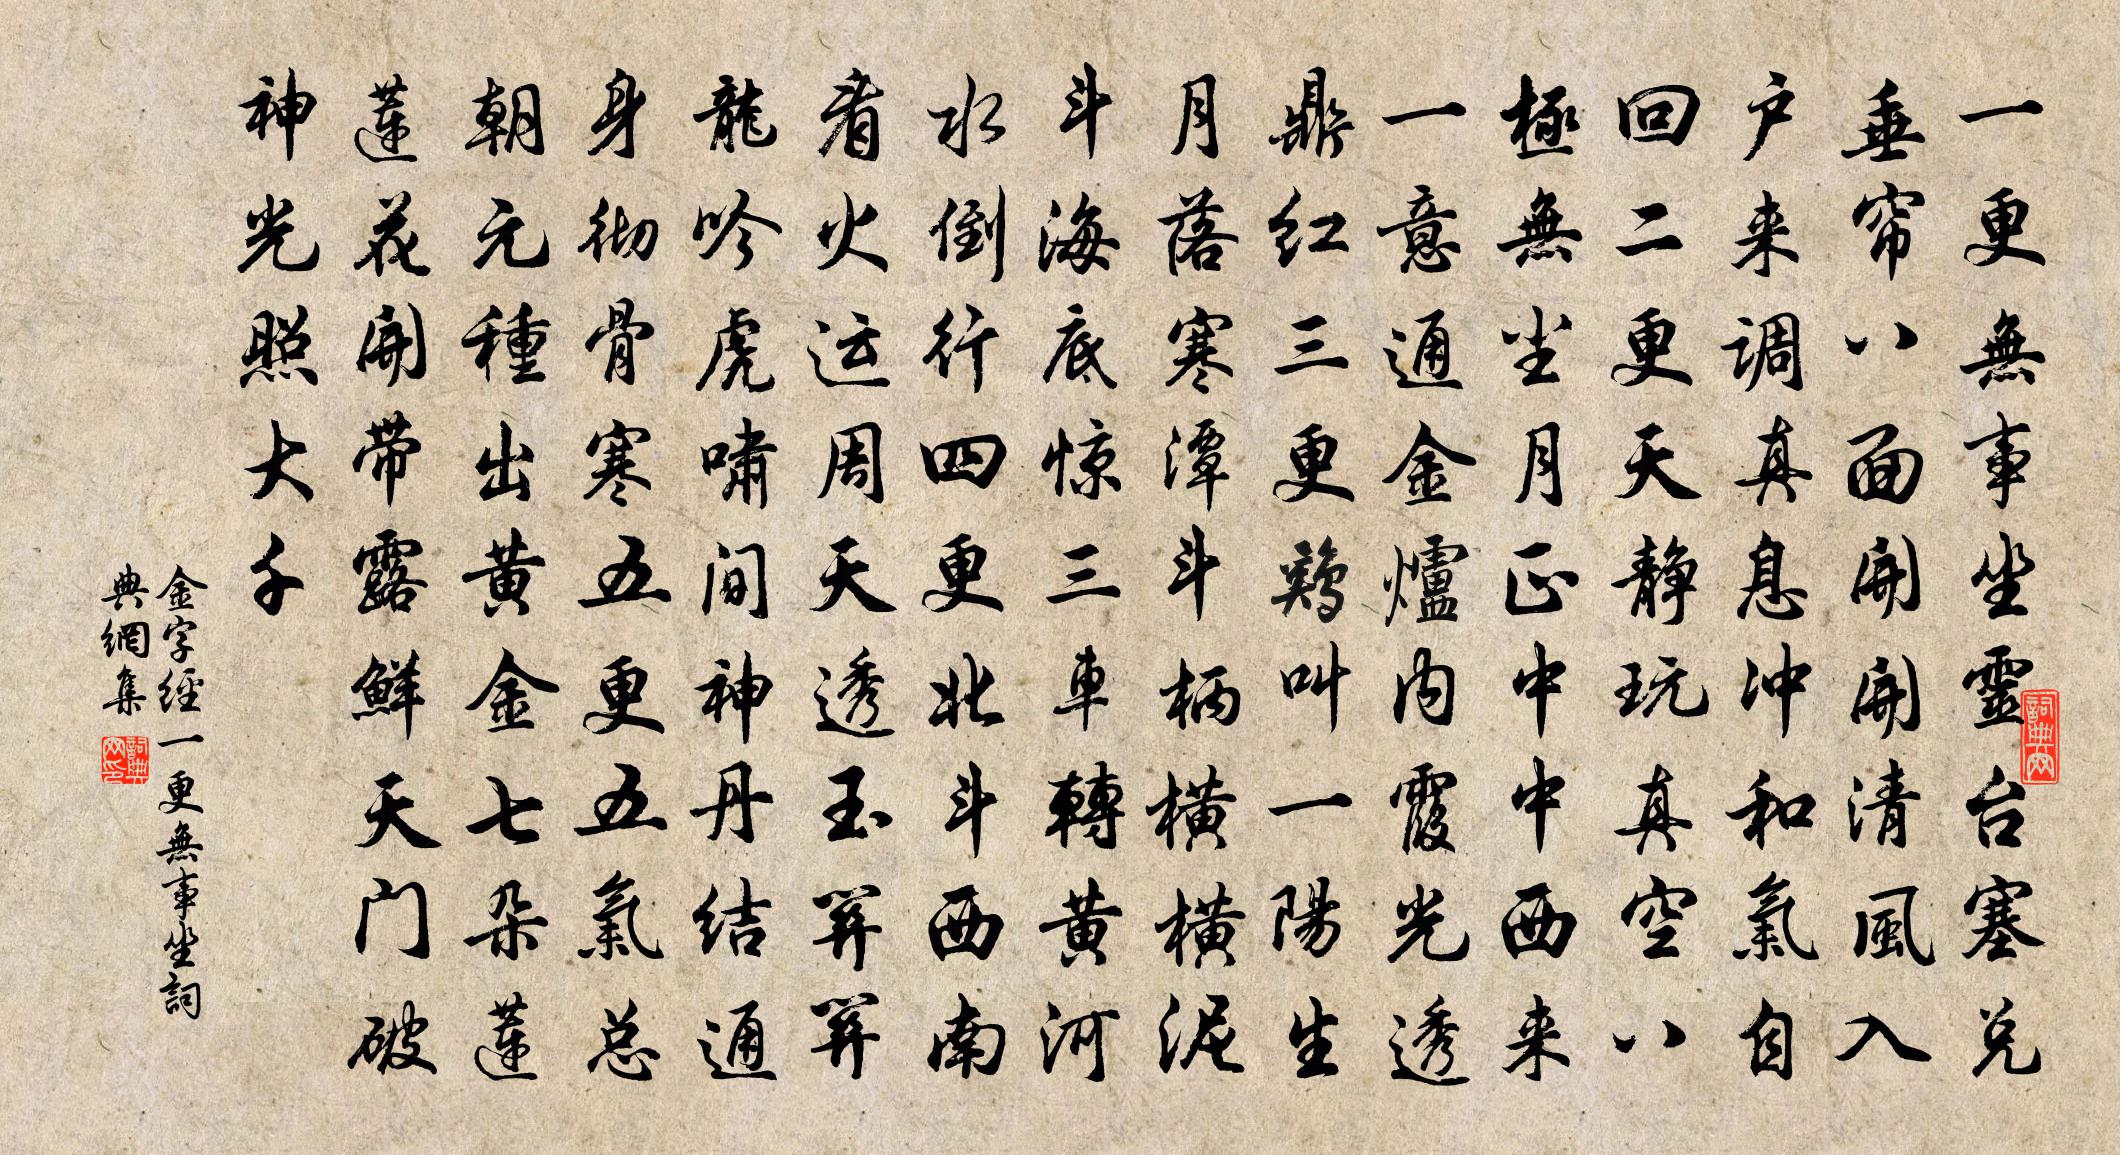 一更無事坐靈台塞兌
垂帘八面開開清風入
户来调真息冲和氣自
回二更天静玩真空八
極無尘月正中中西来
一意通金爐内霞光透
鼎红三更鷄叫一陽生
月落寒潭斗柄橫橫泥
斗海底惊三車轉黄河
水倒行四更北斗西南
看火运周天透玉關關
龍吟虎啸间神丹结通
身彻骨寒五更五氣总
朝元種出黄金七朵蓮
蓮花開带露鲜天门破
神光照大千
金字經一更無事坐詞
典網集
詞典网
詞典网印